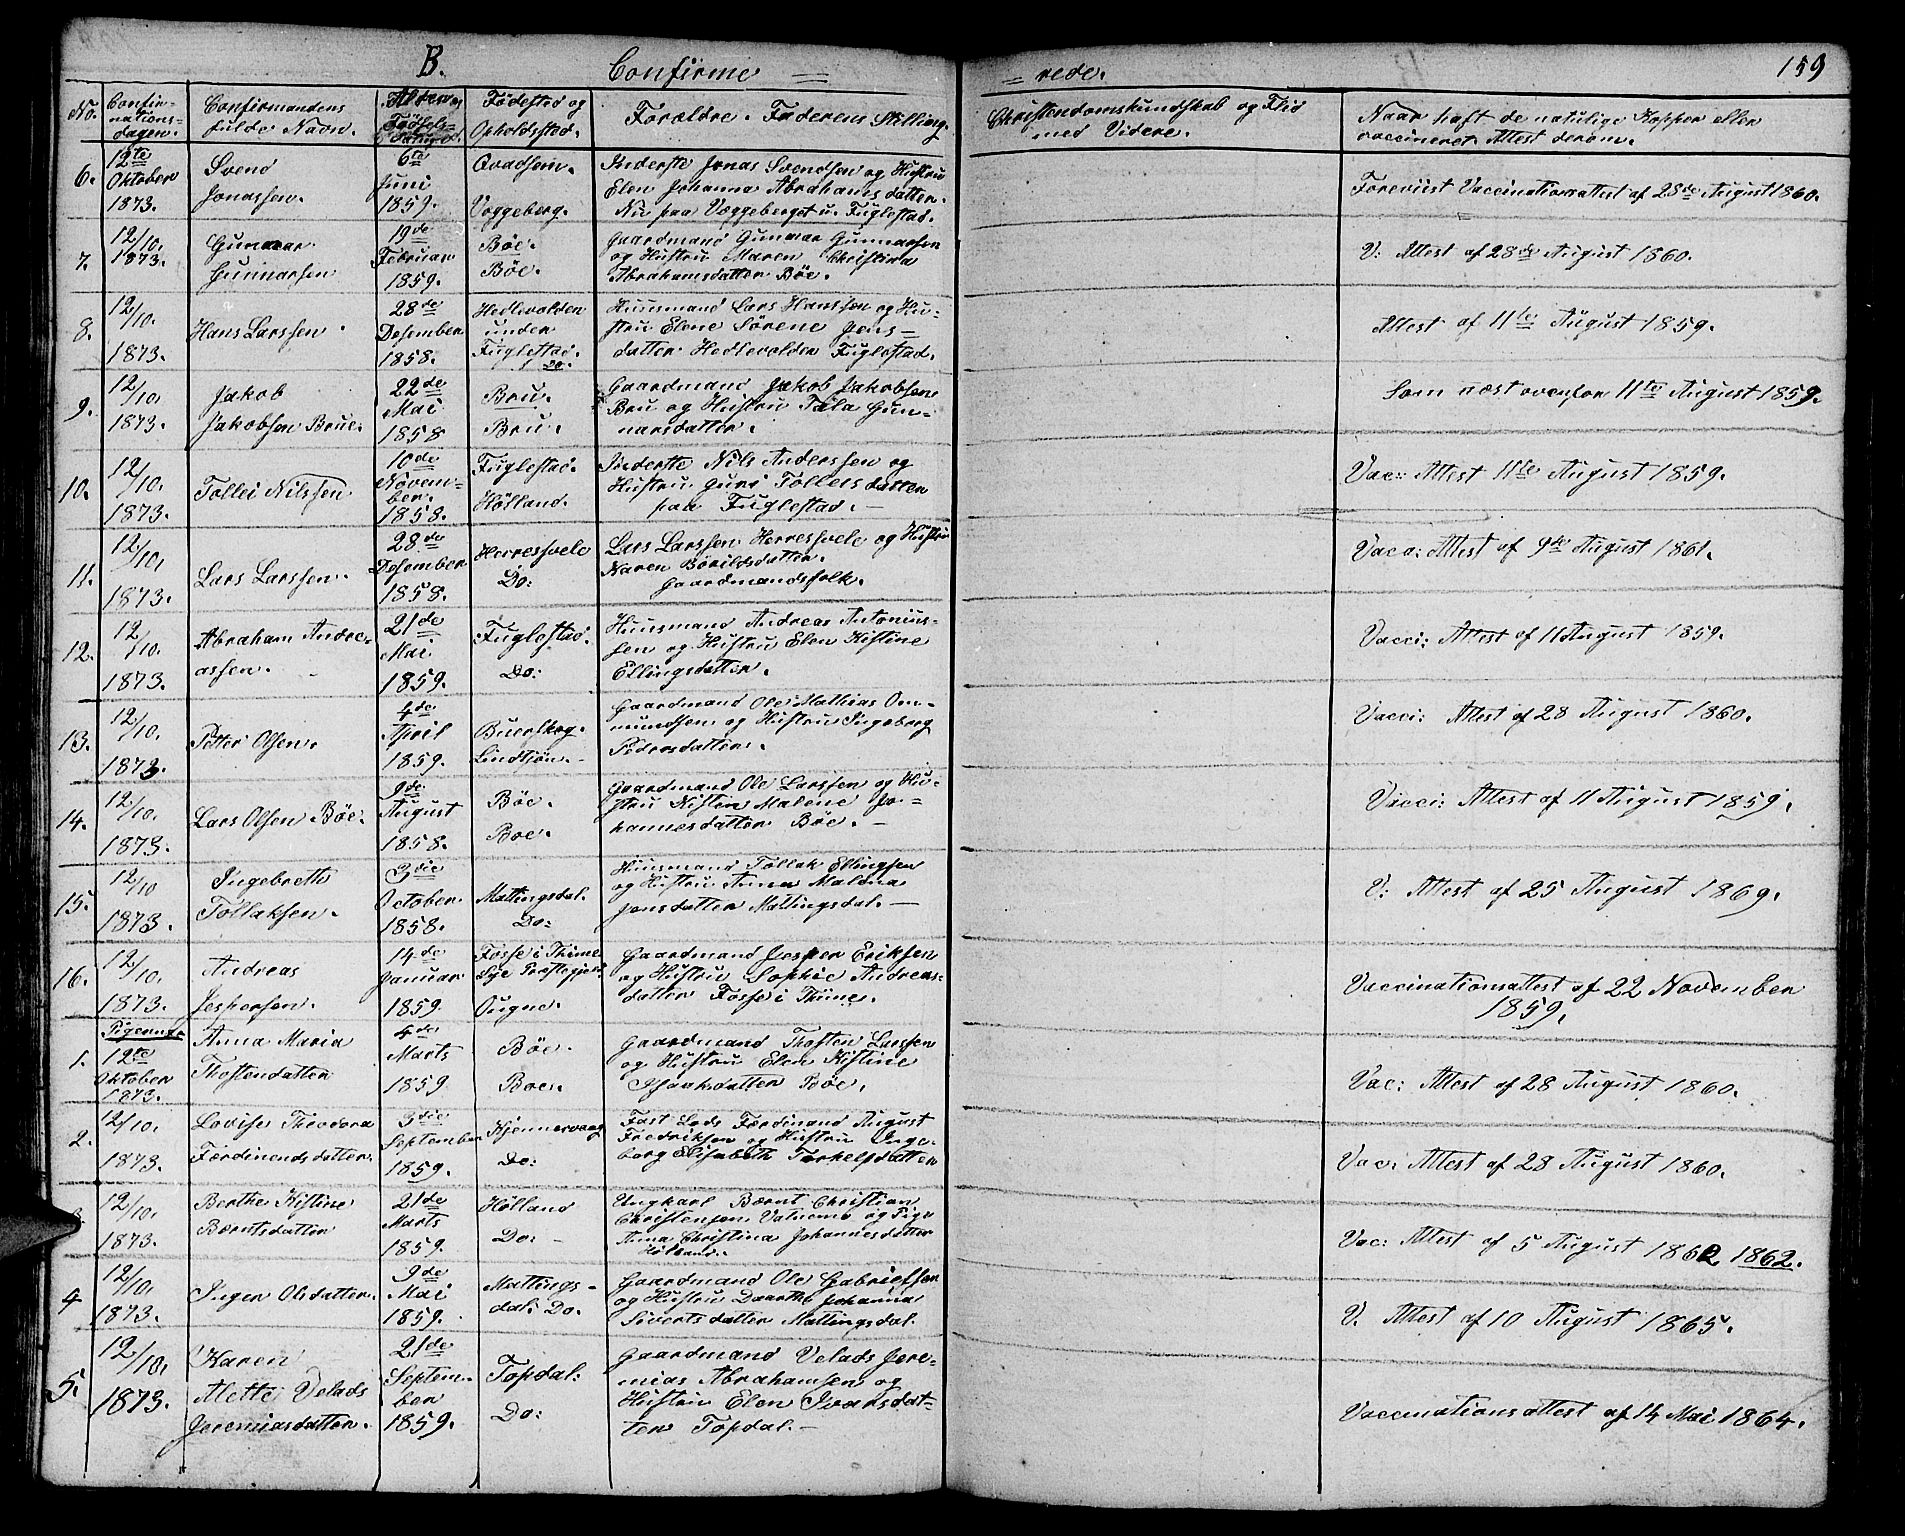 B. Confirme = = rede. 159
No. Confir-
nations-
dagen. Confirmandens
fulde Navn. Alder og
Fødsels-
Datum. Fødested og
Opholdssted. Forældre. Faderens Stilling. Christendomskundskab og Flid
med Videre. Naar haft de natulige Kopper eller
vaccineret. Attest derom.
6. 12te
Oktober
1873. Svend
Jonassen. 6te
Juni
1859. Qvadsem.
Væggeberg. Inderste Jonas Svendsen og Hustru
Elen Johanna Abrahams datter.
Nu paa Væggeberget u. Fuglestad. Foreviist Vaccinationsattest af 28de August 1860.
7. 12/10.
1873. Gunnar
Gunnarsen 19de
Februar
1859. Böe.
Böe. Gaardmand Gunnar Gunnarsen
og Hustru Maren Christina
Abrahamsdatter Böe. V: Attest af 28de August 1860.
8. 12/10.
1873. Hans Larssen. 28de
Desember
1858. Hedlevolden
under
Fuglestad.
Do. Huusmand Lars Hanssen og Hu-
stru Elene Sörene Jens-
datter Hedlevolden Fuglestad. Attest af 11te August 1859.
9. 12/10.
1873. Jakob
Jakobsen Brue. 22de
Mai
1858 Bru.
Bru. Gaardmand Jakob Jakobsen
Bru og Hustru Tala Gun-
narsdatter. Som næst ovenfor 11te August 1859.
10. 12/10.
1873. Tollei Nilssen 10de
Novem-
ber.
1858. Fuglestad.
Hölland. Inderste Nils Anderssen og
Hustru Guri Tolleis datter
paa Fuglestad. Vac: Attest 11te August 1859.
11. 12/10.
1873. Lars Larssen. 28de
Desember
1858. Herresvele
Do: Lars Larssen Herresvele og Hustru
Karen Börildsdatter.
Gaardmandsfolk. Vacc: Attest af 9de August 1861.
12. 12/10.
1873. Abraham Andre-
assen. 21de
Mai
1859. Fuglestad.
Do: Huusmand Andreas Antonius-
sen og Hustru Elen Kistine
Ellingsdatter. Vacci: Attest af 11 August 1859.
13. 12/10.
1873. Petter Olsen. 4de
April
1859. Buerskog.
Lindtjön. Gaardmand Ole Mathias Om-
mundsen og Hustru Ingeborg
Pedersdatter. Vacci: Attest af 28 August 1860.
14. 12/10.
1873. Lars Olsen Böe. 9de
August
1858. Böe.
Boe. Gaardmand Ole Larssen og Hu-
stru Kistin Malene Jo-
hannesdatter Böe. Vacci: Attest af 11 August 1859.
15. 12/10
1873. Ingebreth
Tollaksen. 3die
October
1858. Mattingsdal.
Do: Huusmand Tollak Ellingsen
og Hustru Anna Malena
Jensdatter Mattingsdal. V: Attest af 25 August 1869.
16. 12/10.
1873. Andreas
Jespersen. 14de
Januar
1859. Fosse i Thime
Lye Præstegjeld
Ougne. Gaardmand Jesper Eriksen
og Hustru Sophie Andreas-
datter Fosse i Thime. Vaccinationsattest af 22 November
1859.
Pigerne.
1. 12te
Oktober
1873. Anna Maria
Thostendatter 4de
Marts
1859 Böe.
Boe. Gaardmand Thosten Larssen
og Hustru Elen Kistine
Isaaksdatter Böe. Vac: Attest af 28 August 1860.
2. 12/10.
1873. Lovise Theodora
Færdinends datter. 3die
September
1859. Kjennervaag
Do: Fast Lods Færdinand August
Fredriksen og Hustru Inge-
borg Elisabeth Torkelsdatter Vac: Attest af 28 August 1860.
12/10.
1873. Berthe Kistine
Bærntsdatter 21de
Marts
1859. Hölland
Do: Ungkarl Bærnt Christian
Christensen Vatnemo og Pige
Anna Christina Johannesdatter
Hölland. Vac: Attest af 5 August 1862 1862.
4 12/10.
1873. Inger Olsdatter. 9de
Mai
1859. Mattings-
dal. Do. Gaardmand Ole Gabrielsen
og Hustru Daarthe Johanna
Siverts datter Mattingsdal. V. Attest af 10 August 1865.
5. 12/10.
1873. Karen
Alette Velads
Jeremiasdatter. 21de
Septem-
ber
1859. Topdal.
Do: Gaardmand Velads Jere-
mias Abrahamsen og
Hustru Elen Ivarsdat-
ter Topdal. Vaccinations attest af 14 Mai 1864.